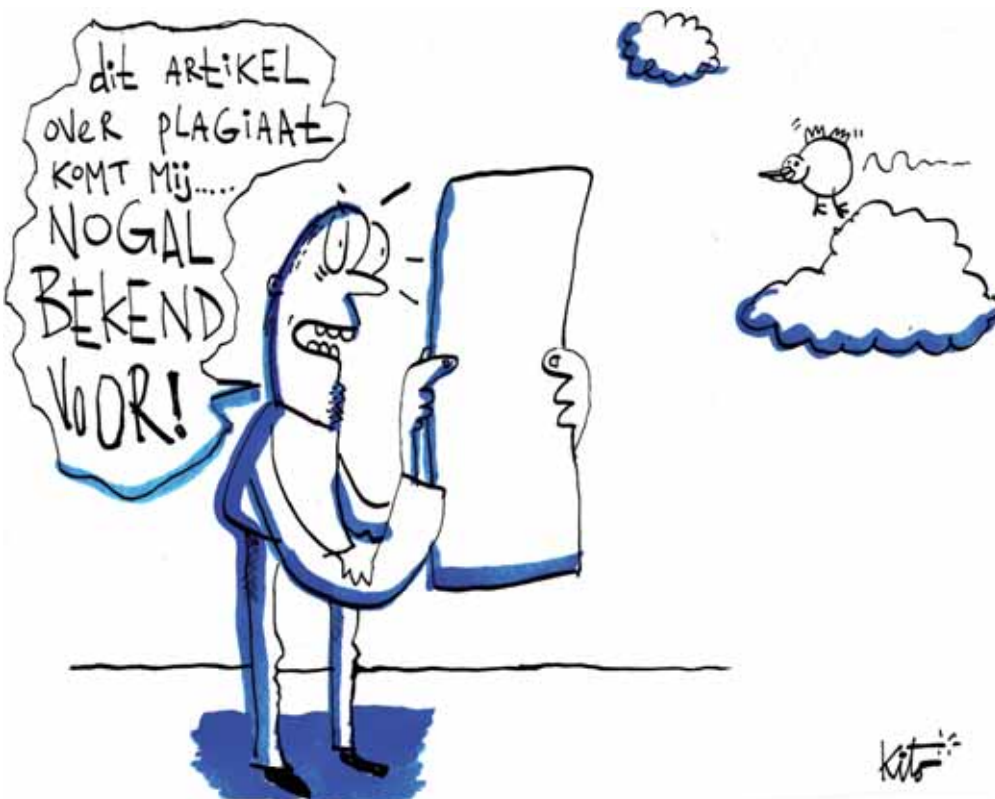 dit ARtiKEL
OVER PLAGiAAt
KOMT Mij.....
NOGAL
BEKEND
VOOR!
Kito